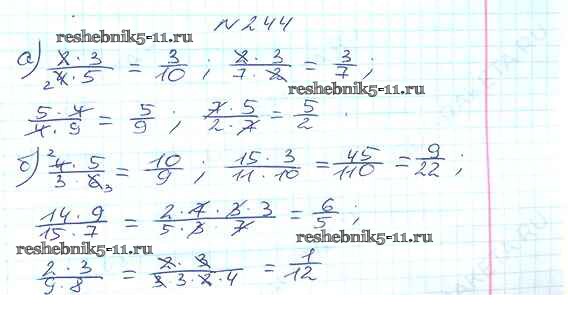 № 244
reshebnik5-11.ru
а) (2 · 3)/(4 · 5) 2 = 3/10 ; (2 · 3)/(7 · 2) = 3/7 ;
reshebnik5-11.ru
(5 · 4)/(4 · 9) = 5/9 ; (7 · 5)/(2 · 7) = 5/2 .
б) (4 · 5)/(3 · 6) 2 3 = 10/9 ; (15 · 3)/(11 · 10) = 45/110 = 9/22 ;
(14 · 9)/(15 · 7) = (2 · 7 · 3 · 3)/(5 · 3 · 7) = 6/5 ;
reshebnik5-11.ru reshebnik5-11.ru
(2 · 3)/(9 · 8) = (2 · 3)/(3 · 3 · 2 · 4) = 1/12